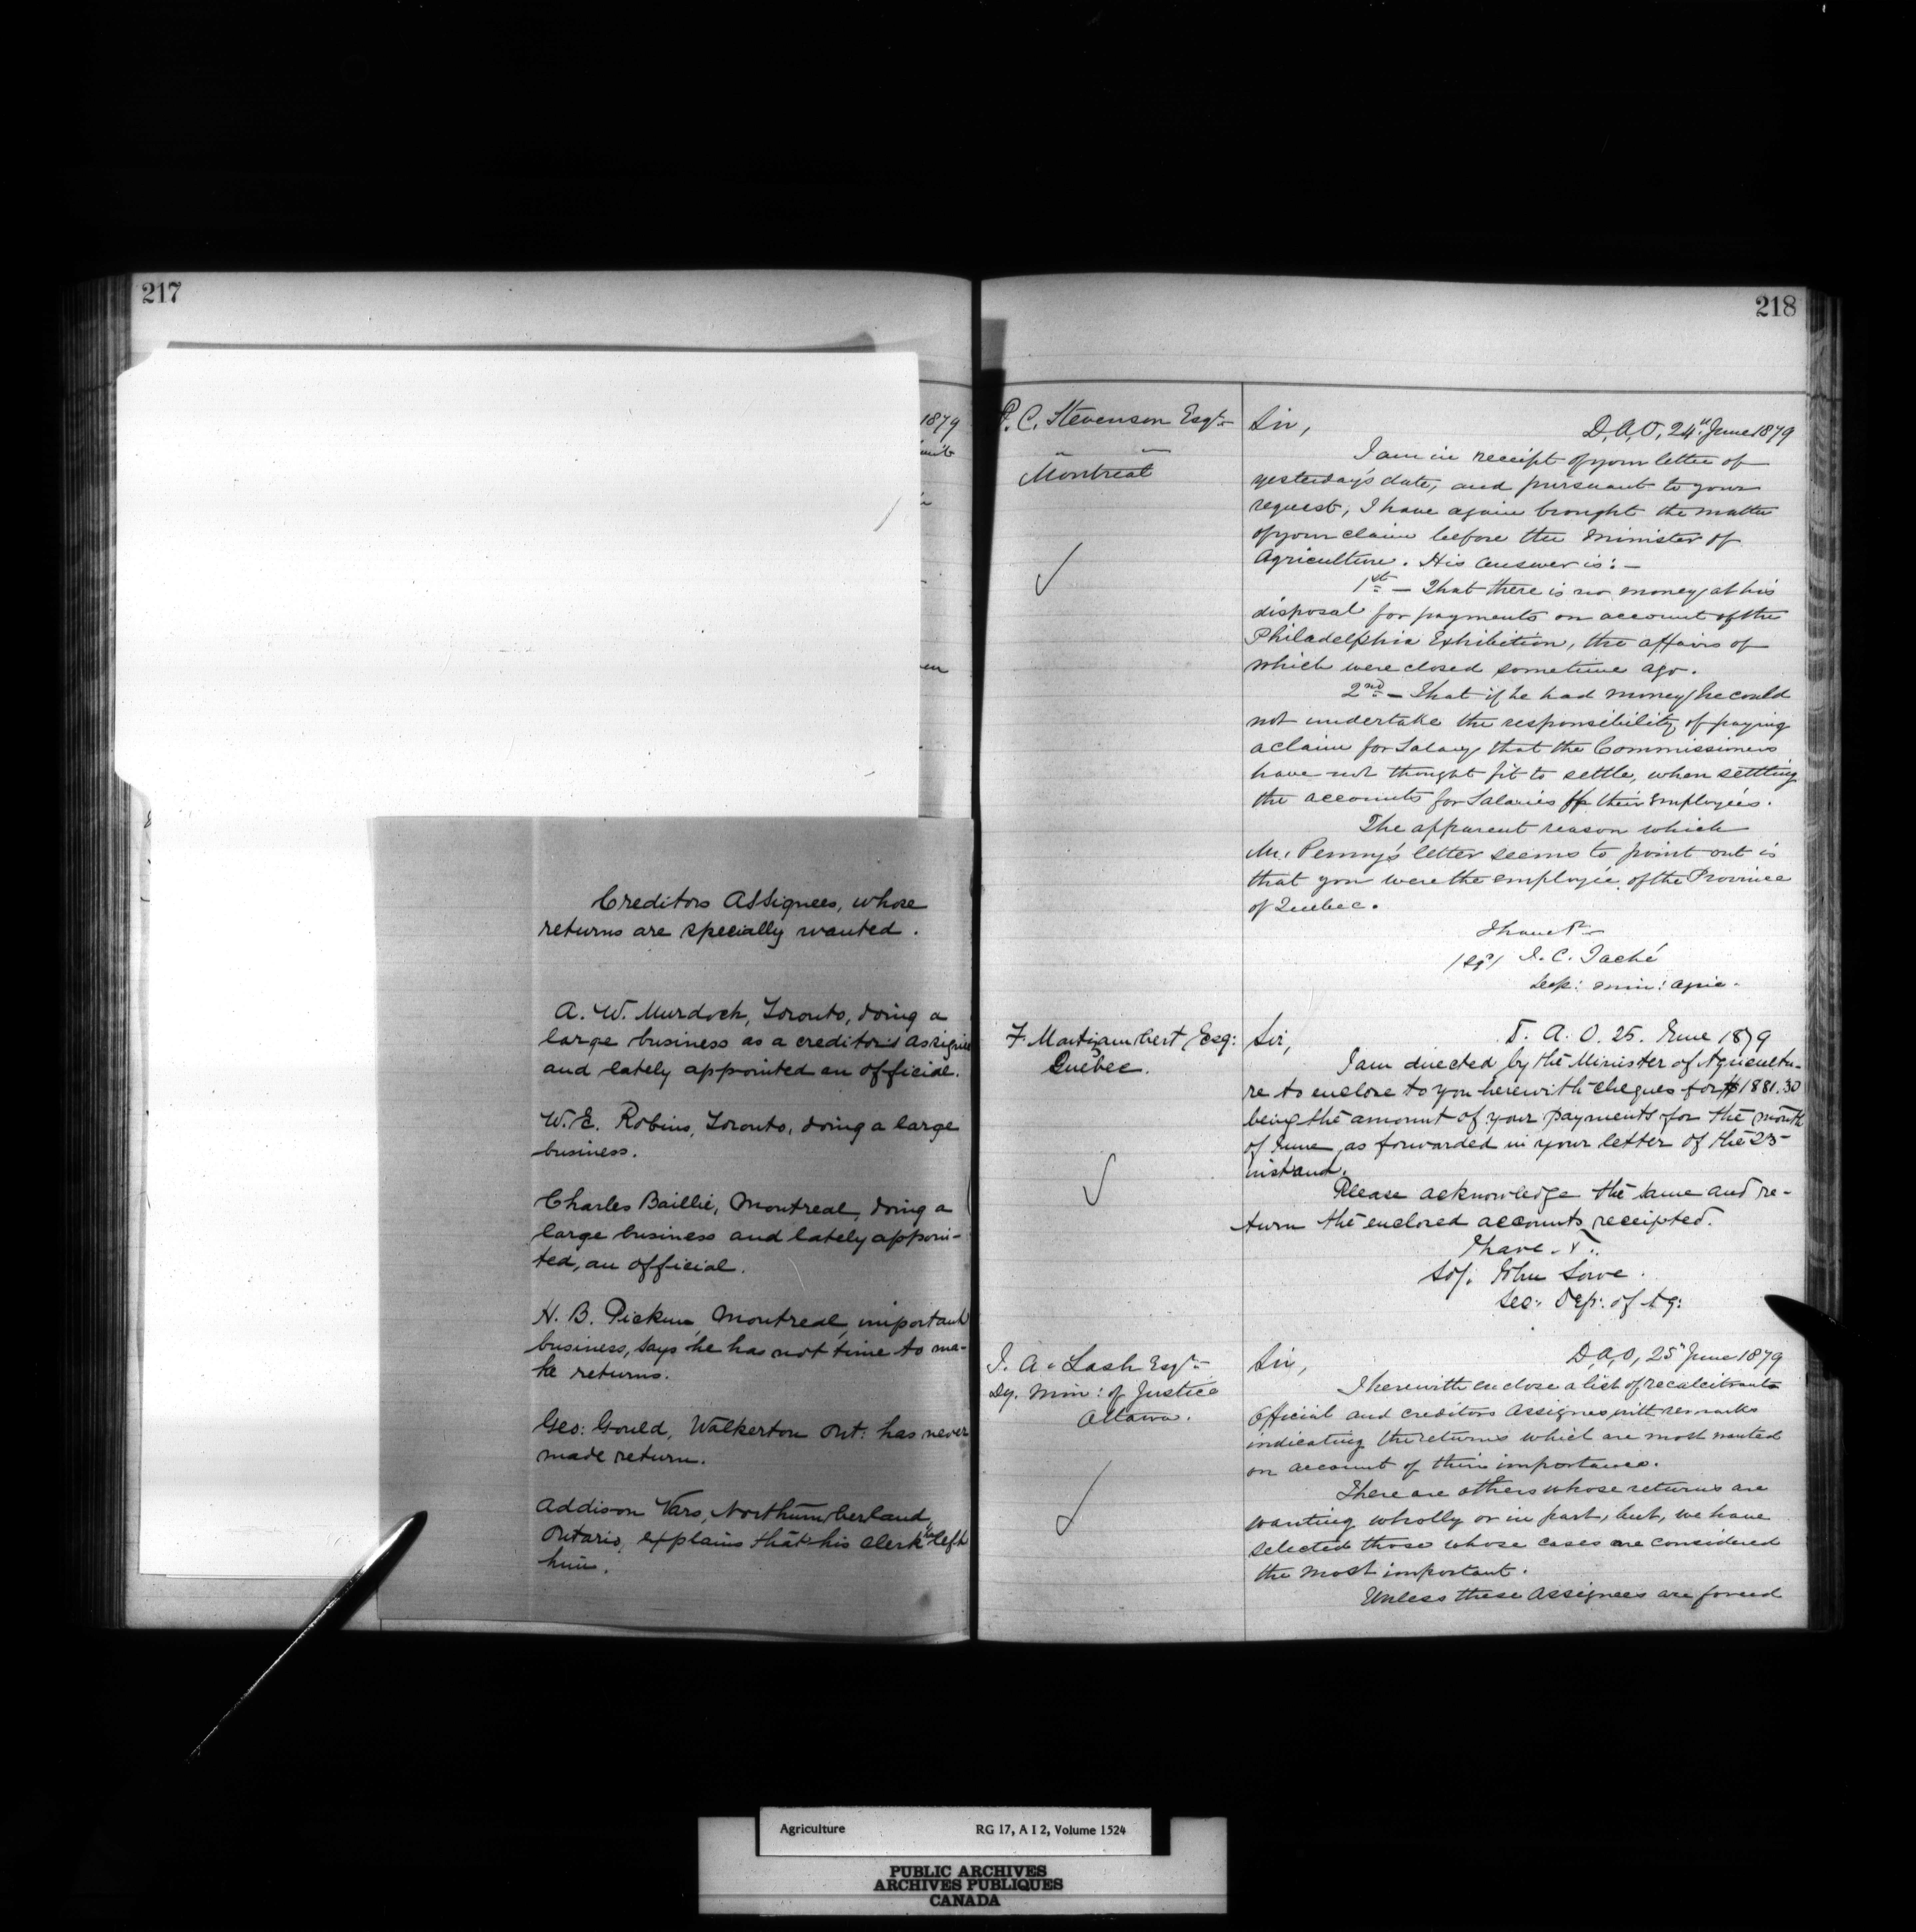 217
1879
Creditors Assignees, whose
returns are specially wanted.
A. W. Murdoch, Toronto, doing a
large business as a creditors assignee
and lately appointed an official.
W. E. Robins, Toronto, doing a large
business.
Charles Baillie, Montreal, doing a
large business and lately appoin-
ted, an official.
H. B. Picken, Montreal, important
business, says he has not time to ma-
ke returns.
Geo: Gould, Walkerton Ont: has never
made return.
Addison Vars, Northumberland,
Ontario, explains that his clerk has left
him.
218
P. C. Stevenson Esqr
Montreal
Sir,
D, A, O, 24th June 1879
I am in receipt of your letter of
yesterday's date, and pursuant to your
request, I have again brought the matter
of your claim before the Minister of
Agriculture. His answer is: —
1st — That there is no money at his
disposal for payments on account of the
Philadelphia Exhibition, the affairs of
which were closed sometime ago.
2nd — That if he had money, he could
not undertake the responsibility of paying
a claim for Salary, that the Commissioners
have not thought fit to settle, when settling
the accounts for Salaries of their employés.
The apparent reason which
Mr. Penny's letter seems to point out is
that you were the employée of the Province
of Quebec.
I have &c
/sg/ J. C. Taché
Dep: Min: Agric.
F. Montizambert Esq:
Quebec.
Sir,
D. A. O. 25. June 1879
I am directed by the Minister of Agricultu-
re to enclose to you herewith cheques for $1881.30
being the amount of your payments for the month
of June, as forwarded in your letter of the 23
instand.
Please acknowledge the same and re-
turn the enclosed accounts receipted.
I have &.
Sd/. John Lowe.
Sec: Dep: of Ag:
Z. A. Lash Esqr
Dy. Min: of Justice
Ottawa.
Sir,
D, A, O, 25 June 1879
I herewith enclose a list of recalcitrants
Official and creditors Assignees with remarks
indicating the returns which are most wanted
on account of their importance.
There are others whose returns are
wanting wholly or in part, but, we have
selected those whose cases are considered
the most important.
Unless these Assignees are forced
Agriculture RG 17, A I 2, Volume 1524
PUBLIC ARCHIVES
ARCHIVES PUBLIQUES
CANADA